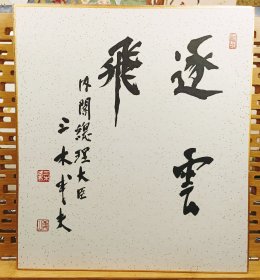 逐雲
飛
内閣總理大臣
三木武夫